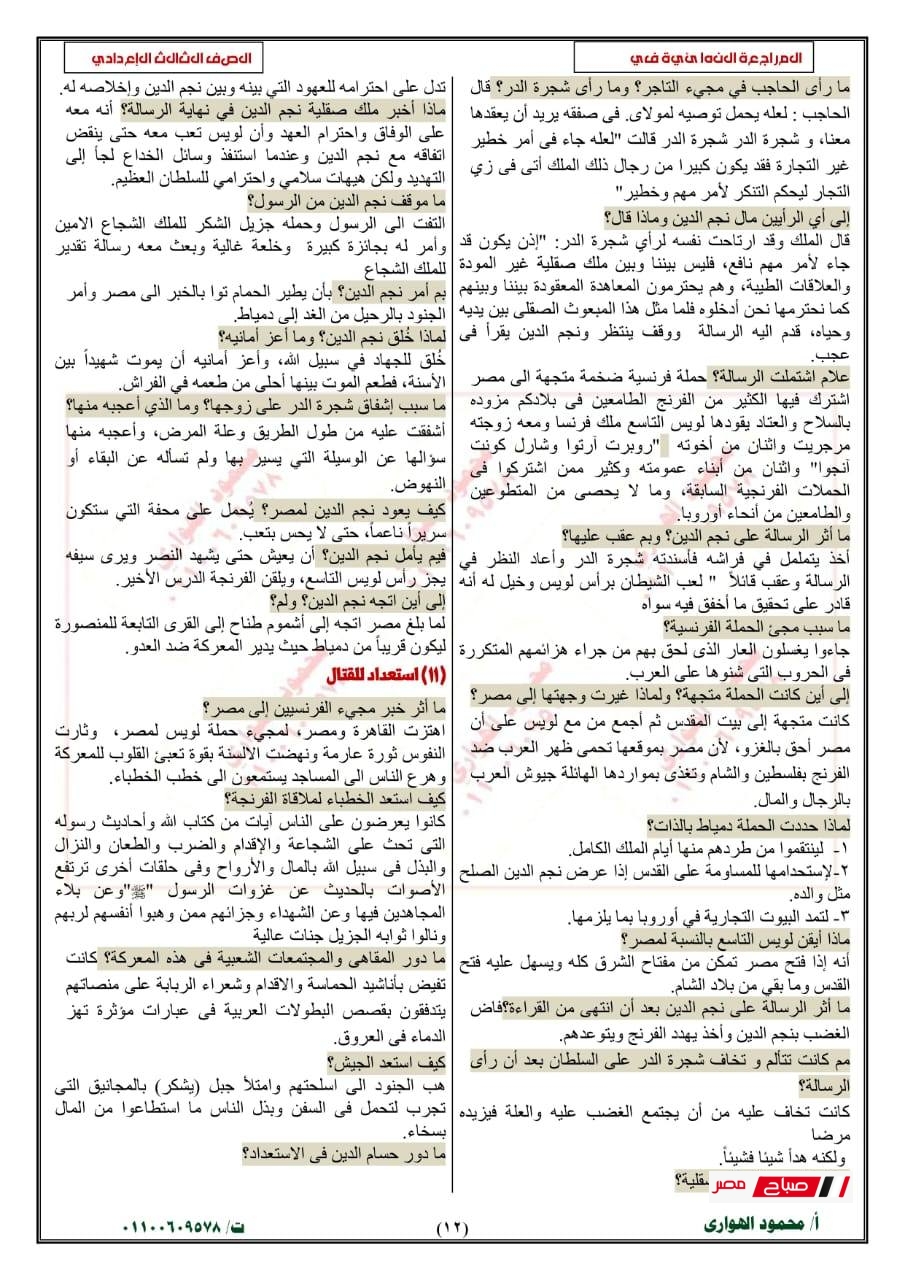 المراجعة النهائية في
الصف الثالث الإعدادي
ما رأى الحاجب في مجيء التاجر؟ وما رأى شجرة الدر؟ قال
الحاجب : لعله يحمل توصيه لمولاى. فى صفقه يريد أن يعقدها
معنا، و شجرة الدر شجرة الدر قالت "لعله جاء فى أمر خطير
غير التجارة فقد يكون كبيرا من رجال ذلك الملك أتى فى زي
التجار ليحكم التنكر لأمر مهم وخطير"
إلى أي الرأيين مال نجم الدين وماذا قال؟
قال الملك وقد ارتاحت نفسه لرأي شجرة الدر: "إذن يكون قد
جاء لأمر مهم نافع، فليس بيننا وبين ملك صقلية غير المودة
والعلاقات الطيبة، وهم يحترمون المعاهدة المعقودة بيننا وبينهم
كما نحترمها نحن أدخلوه فلما مثل هذا المبعوث الصقلى بين يديه
وحياه، قدم اليه الرسالة ووقف ينتظر ونجم الدين يقرأ فى
عجب.
علام اشتملت الرسالة؟ حملة فرنسية ضخمة متجهة الى مصر
اشترك فيها الكثير من الفرنج الطامعين فى بلادكم مزوده
بالسلاح والعتاد يقودها لويس التاسع ملك فرنسا ومعه زوجته
مرجريت واثنان من أخوته "روبرت آرتوا وشارل كونت
آنجوا" واثنان من أبناء عمومته وكثير ممن اشتركوا فى
الحملات الفرنجية السابقة، وما لا يحصى من المتطوعين
والطامعين من أنحاء أوروبا.
ما أثر الرسالة على نجم الدين؟ وبم عقب عليها؟
أخذ يتململ في فراشه فأسندته شجرة الدر وأعاد النظر في
الرسالة وعقب قائلاً " لعب الشيطان برأس لويس وخيل له أنه
قادر على تحقيق ما أخفق فيه سواه
ما سبب مجئ الحملة الفرنسية؟
جاءوا يغسلون العار الذى لحق بهم من جراء هزائمهم المتكررة
فى الحروب التى شنوها على العرب.
إلى أين كانت الحملة متجهة؟ ولماذا غيرت وجهتها إلى مصر؟
كانت متجهة إلى بيت المقدس ثم أجمع من مع لويس على أن
مصر أحق بالغزو، لأن مصر بموقعها تحمى ظهر العرب ضد
الفرنج بفلسطين والشام وتغذى بمواردها الهائلة جيوش العرب
بالرجال والمال.
لماذا حددت الحملة دمياط بالذات؟
١- لينتقموا من طردهم منها أيام الملك الكامل.
٢-لإستخدامها للمساومة على القدس إذا عرض نجم الدين الصلح
مثل والده.
٣- لتمد البيوت التجارية في أوروبا بما يلزمها.
ماذا أيقن لويس التاسع بالنسبة لمصر؟
أنه إذا فتح مصر تمكن من مفتاح الشرق كله ويسهل عليه فتح
القدس وما بقي من بلاد الشام.
ما أثر الرسالة على نجم الدين بعد أن انتهى من القراءة؟فاض
الغضب بنجم الدين وأخذ يهدد الفرنج ويتوعدهم.
مم كانت تتألم و تخاف شجرة الدر على السلطان بعد أن رأى
الرسالة؟
كانت تخاف عليه من أن يجتمع الغضب عليه والعلة فيزيده
مرضا
ولكنه هدأ شيئا فشيئاً.
صقلية؟
صباح مصر
تدل على احترامه للعهود التي بينه وبين نجم الدين وإخلاصه له.
ماذا أخبر ملك صقلية نجم الدين في نهاية الرسالة؟ أنه معه
على الوفاق واحترام العهد وأن لويس تعب معه حتى ينقض
اتفاقه مع نجم الدين وعندما استنفذ وسائل الخداع لجأ إلى
التهديد ولكن هيهات سلامي واحترامي للسلطان العظيم.
ما موقف نجم الدين من الرسول؟
التفت الى الرسول وحمله جزيل الشكر للملك الشجاع الامين
وأمر له بجائزة كبيرة وخلعة غالية وبعث معه رسالة تقدير
للملك الشجاع
بم أمر نجم الدين؟ بأن يطير الحمام توا بالخبر الى مصر وأمر
الجنود بالرحيل من الغد إلى دمياط.
لماذا خُلق نجم الدين؟ وما أعز أمانيه؟
خُلق للجهاد في سبيل الله، وأعز أمانيه أن يموت شهيداً بين
الأسنة، فطعم الموت بينها أحلى من طعمه في الفراش.
ما سبب إشفاق شجرة الدر على زوجها؟ وما الذي أعجبه منها؟
أشفقت عليه من طول الطريق وعلة المرض، وأعجبه منها
سؤالها عن الوسيلة التي يسير بها ولم تسأله عن البقاء أو
النهوض.
كيف يعود نجم الدين لمصر؟ يُحمل على محفة التي ستكون
سريراً ناعماً، حتى لا يحس بتعب.
فيم يأمل نجم الدين؟ أن يعيش حتى يشهد النصر ويرى سيفه
يجز رأس لويس التاسع، ويلقن الفرنجة الدرس الأخير.
إلى أين اتجه نجم الدين؟ ولم؟
لما بلغ مصر اتجه إلى أشموم طناح إلى القرى التابعة للمنصورة
ليكون قريباً من دمياط حيث يدير المعركة ضد العدو.
(١١) استعداد للقتال
ما أثر خبر مجيء الفرنسيين إلى مصر؟
اهتزت القاهرة ومصر، لمجيء حملة لويس لمصر، وثارت
النفوس ثورة عارمة ونهضت الالسنة بقوة تعبئ القلوب للمعركة
وهرع الناس الى المساجد يستمعون الى خطب الخطباء.
كيف استعد الخطباء لملاقاة الفرنجة؟
كانوا يعرضون على الناس آيات من كتاب الله وأحاديث رسوله
التى تحث على الشجاعة والإقدام والضرب والطعان والنزال
والبذل فى سبيل الله بالمال والأرواح وفى حلقات أخرى ترتفع
الأصوات بالحديث عن غزوات الرسول "ﷺ"وعن بلاء
المجاهدين فيها وعن الشهداء وجزائهم ممن وهبوا أنفسهم لربهم
ونالوا ثوابه الجزيل جنات عالية
ما دور المقاهى والمجتمعات الشعبية فى هذه المعركة؟ كانت
تفيض بأناشيد الحماسة والاقدام وشعراء الربابة على منصاتهم
يتدفقون بقصص البطولات العربية فى عبارات مؤثرة تهز
الدماء فى العروق.
كيف استعد الجيش؟
هب الجنود الى اسلحتهم وامتلأ جبل (يشكر) بالمجانيق التى
تجرب لتحمل فى السفن وبذل الناس ما استطاعوا من المال
بسخاء.
ما دور حسام الدين فى الاستعداد؟
أ/ محمود الهوارى
(١٢)
ت/ ٠١١٠٠٦٠٩٥٧٨